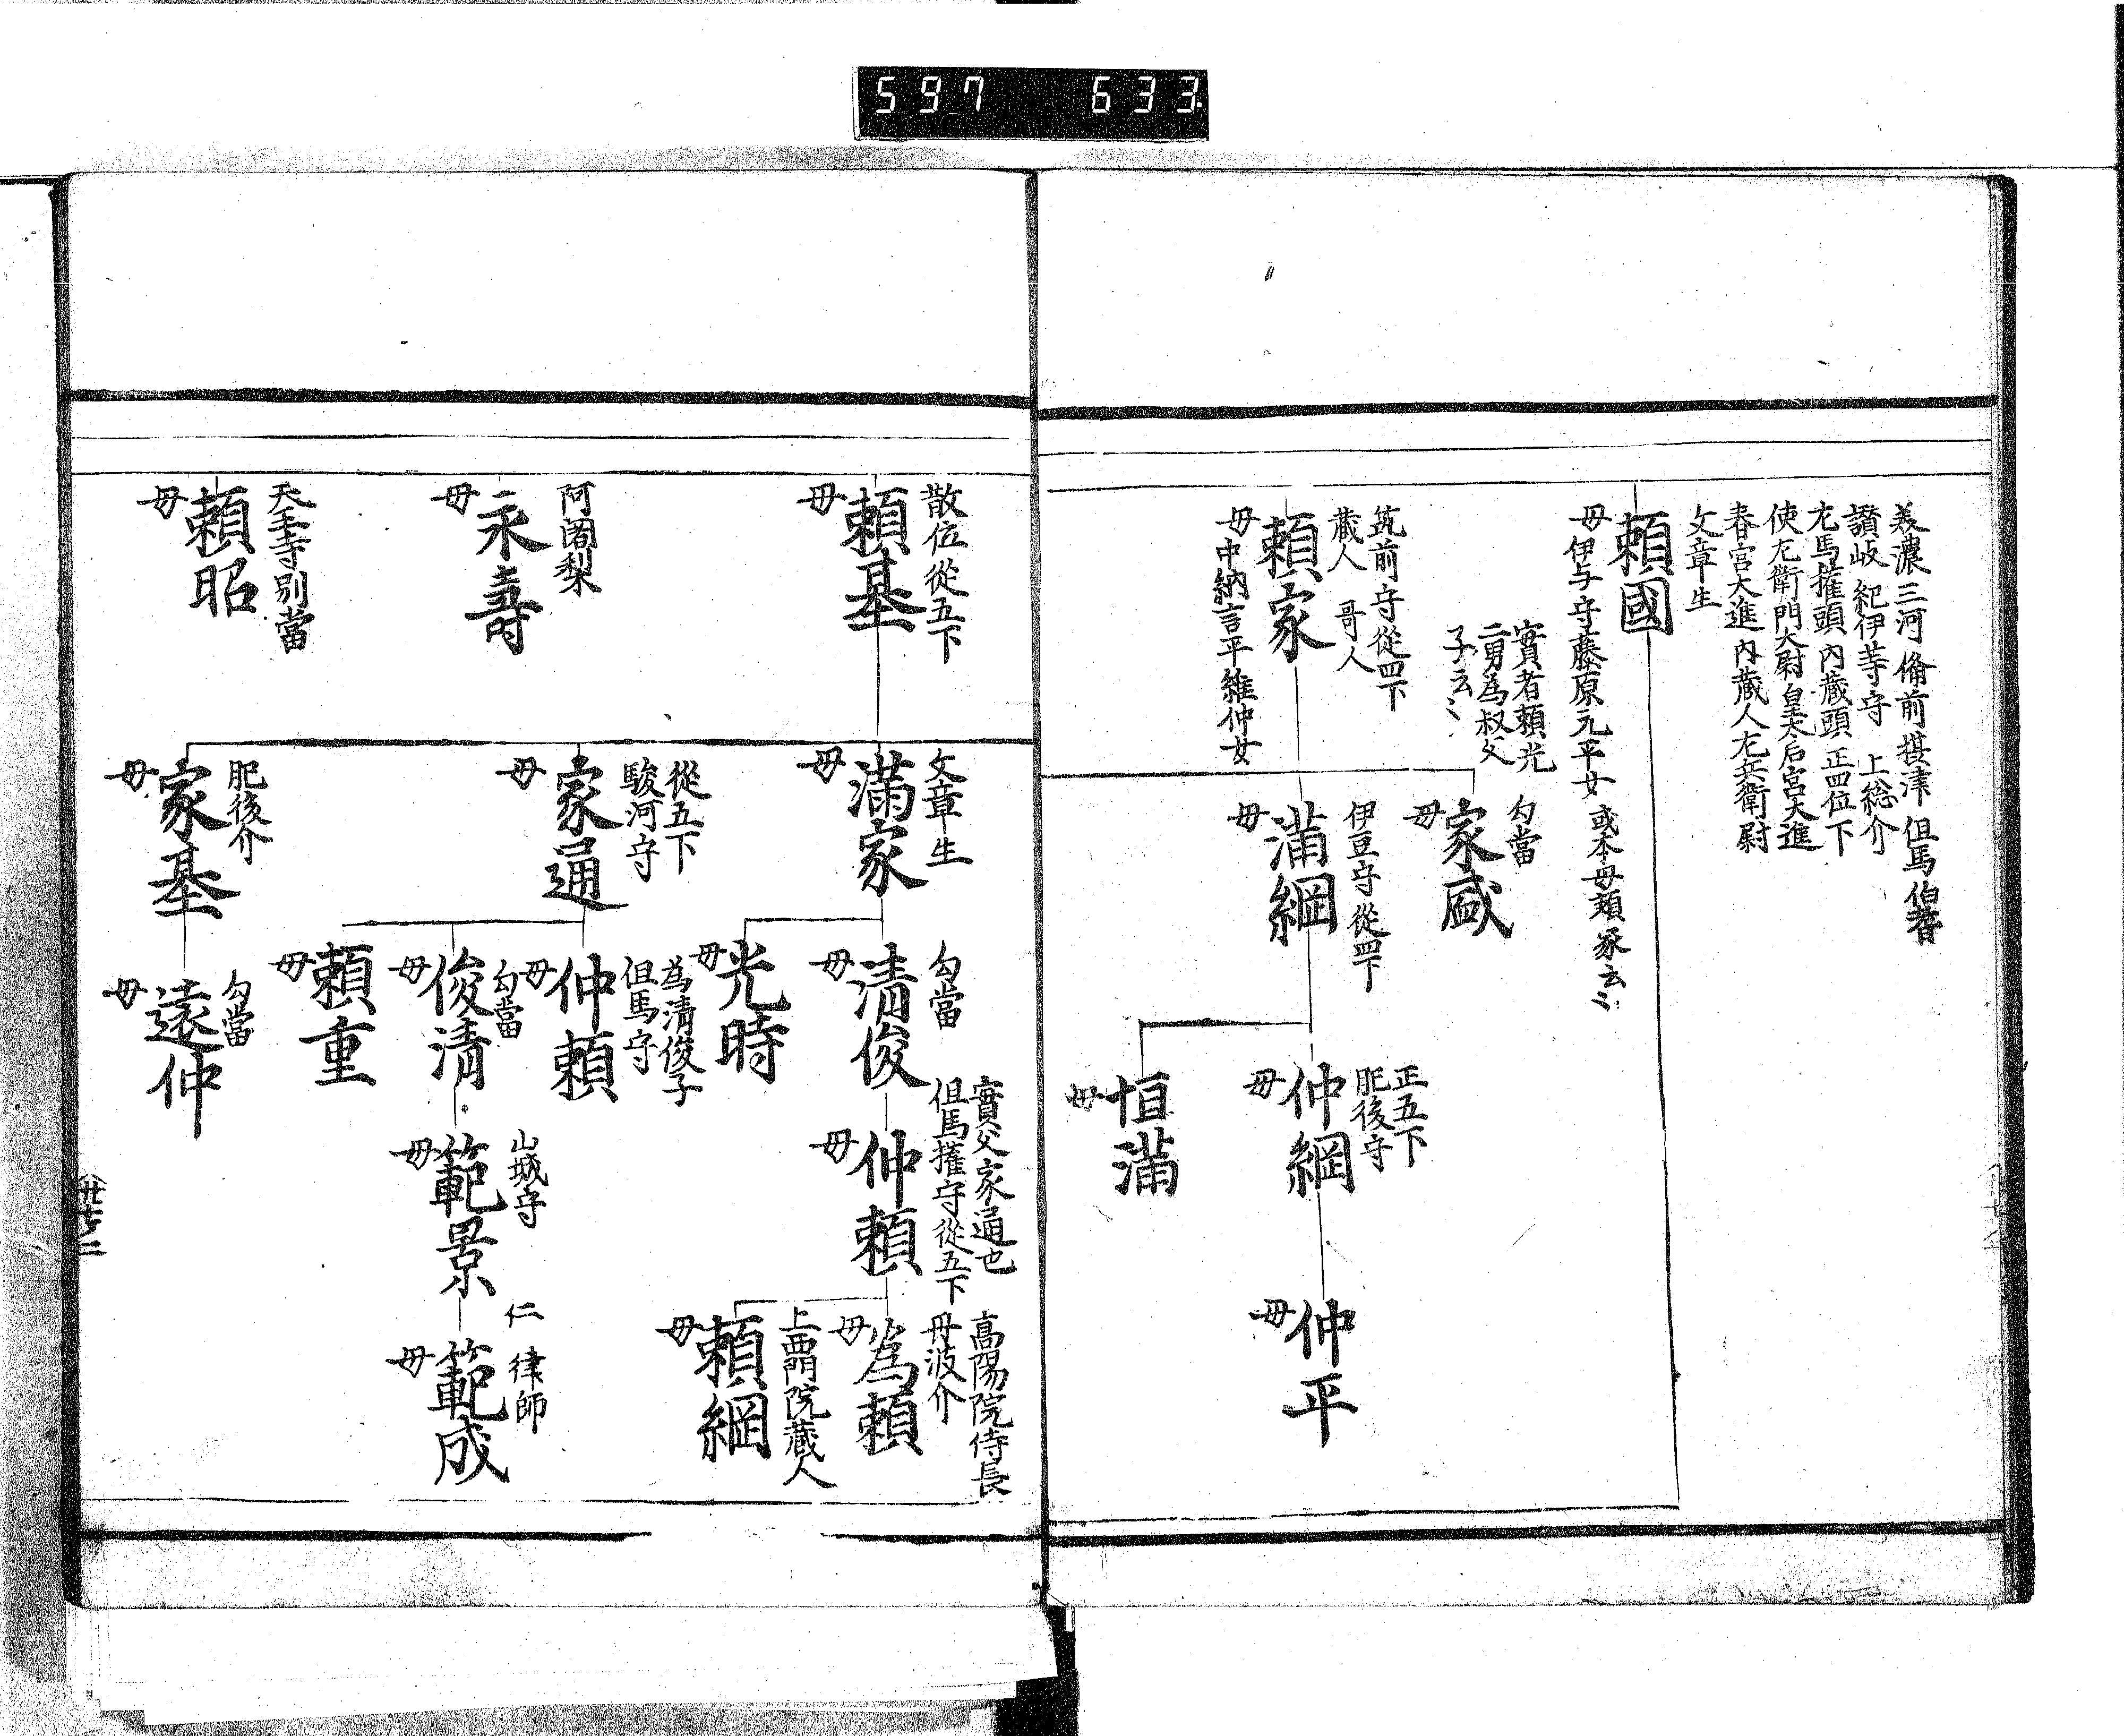 597 633
美濃三河備前摂津但馬伯耆
讃岐紀伊等守 上総介
左馬権頭内蔵頭正四位下
使左衛門大尉皇太后宮大進
春宮大進内蔵人左兵衛尉
文章生
頼國
母伊与守藤原元平女 或本母頼家云〻
實者頼光
二男為叔父
子云〻
筑前守従四下
蔵人 哥人
頼家
母中納言平維仲女
勾當
家盛
母
伊豆守従四下
満綱
母
正五下
肥後守
仲綱
母
仲平
母
恒満
母
散位従五下
頼基
母
文章生
満家
母
勾當
清俊
母
實父家通也
但馬権守従五下
仲頼
母
高陽院侍長
丹波介
為頼
母
上西門院蔵人
頼綱
母
光時
母
従五下
駿河守
家通
母
為清俊子
但馬守
仲頼
母
勾當
俊清
母
山城守
範景
母
仁 律師
範成
母
頼重
母
肥後介
家基
母
勾當
遠仲
母
阿闍梨
永壽
母
天王寺別當
頼昭
母